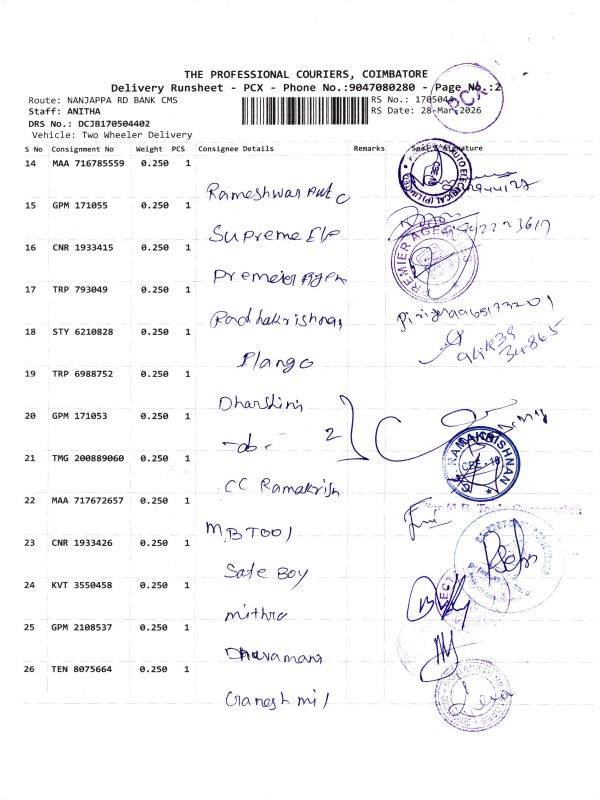 THE PROFESSIONAL COURIERS, COIMBATORE
Delivery Runsheet - PCX - Phone No.:9047080280 - Page No.:2
Route: NANJAPPA RD BANK CMS
RS No.: 1705044
Staff: ANITHA
RS Date: 28-Mar-2026
DRS No.: DCJB170504402
Vehicle: Two Wheeler Delivery
PCX
S No Consignment No Weight PCS Consignee Details Remarks Seal & Signature
14 MAA 716785559 0.250 1
Rameshwar Pvt C
15 GPM 171055 0.250 1
Supreme Elp
16 CNR 1933415 0.250 1
Premeier Agen
17 TRP 793049 0.250 1
Radhakrishnan
18 STY 6210828 0.250 1
Elango
19 TRP 6988752 0.250 1
Dharshini
20 GPM 171053 0.250 1
-do- 2
21 TMG 200889060 0.250 1
CC Ramakrish
RAMAKRISHNAN
CBE - 18
22 MAA 717672657 0.250 1
MB TOOl
23 CNR 1933426 0.250 1
Safe Boy
24 KVT 3550458 0.250 1
mithra
25 GPM 2108537 0.250 1
Dhavamani
26 TEN 8075664 0.250 1
Ganesh mil